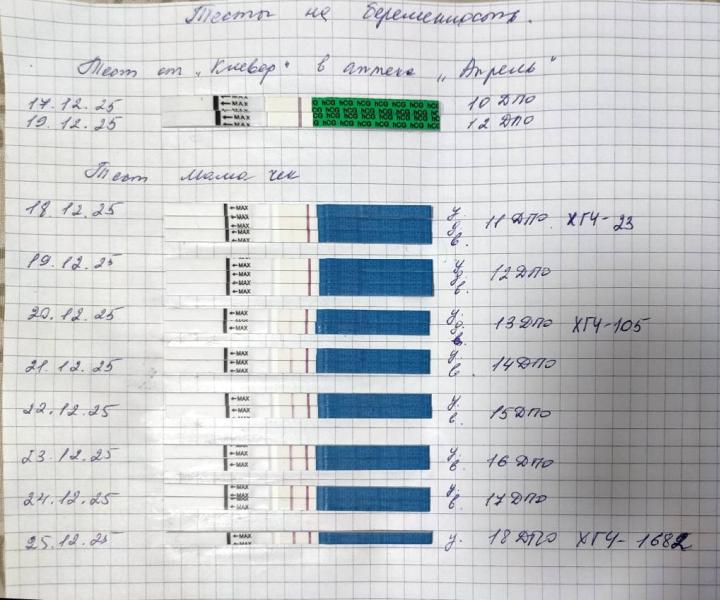 Тесты на беременность.
Тест от „Клевер" в аптеке „Апрель"
17.12.25 ←MAX hCG hCG hCG hCG hCG hCG 10 ДПО
19.12.25 ←MAX hCG hCG hCG hCG hCG hCG 12 ДПО
Тест мама чек
18.12.25 ←MAX ←MAX ←MAX у. д. в. 11 ДПО. ХГЧ-23
19.12.25 ←MAX ←MAX ←MAX у. д. в. 12 ДПО
20.12.25 ←MAX ←MAX у. д. в. 13 ДПО ХГЧ-105
21.12.25 ←MAX ←MAX у. в. 14 ДПО
22.12.25 ←MAX у. в. 15 ДПО
23.12.25 ←MAX ←MAX у. в. 16 ДПО
24.12.25 ←MAX ←MAX у. в. 17 ДПО
25.12.25 ←MAX у. 18 ДПО ХГЧ-1682